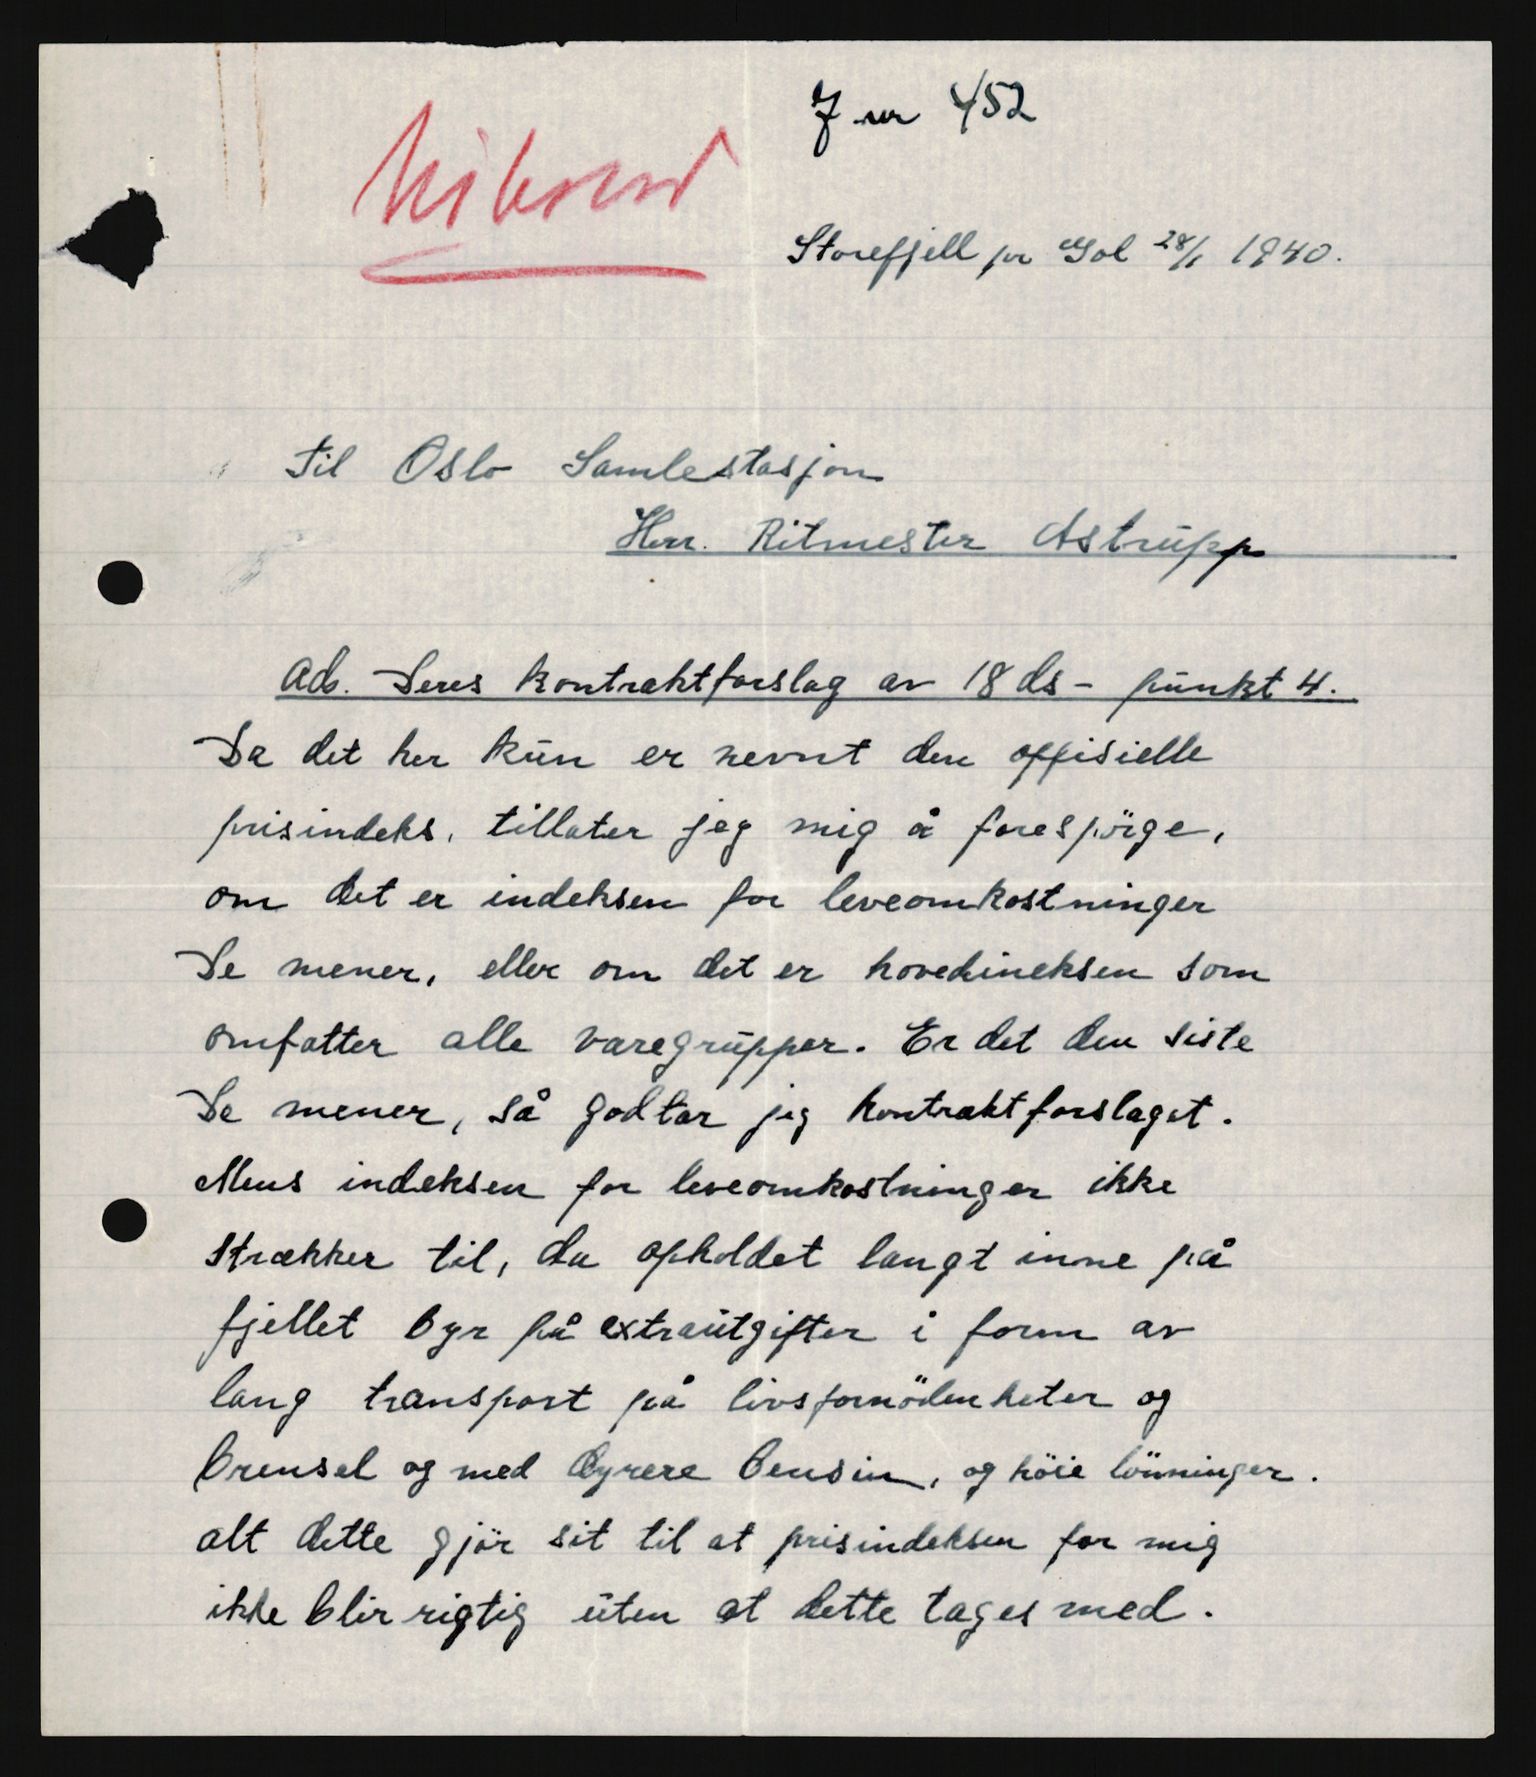 J nr 452
Storefjell pr Gol 28/1 1940.
Til Oslo Samlestasjon
Herr. Ritmester Astrupp
Ad. Deres kontraktforslag av 18 ds - punkt 4.
Da det her kun er nevnt den offisielle
prisindeks, tillater jeg mig å forespörge,
om det er indeksen for leveomkostninger
De mener, eller om det er hovedineksen som
omfatter alle varegrupper. Er det den siste
De mener, så godtar jeg kontraktforslaget.
Mens indeksen for leveomkostninger ikke
strækker til, da opholdet langt inne på
fjellet byr på extrautgifter i form av
lang transport på livsfornödenheter og
brensel og med dyrere bensin, og höie lönninger.
alt dette gjör sit til at prisindeksen for mig
ikke blir rigtig uten at dette tages med.